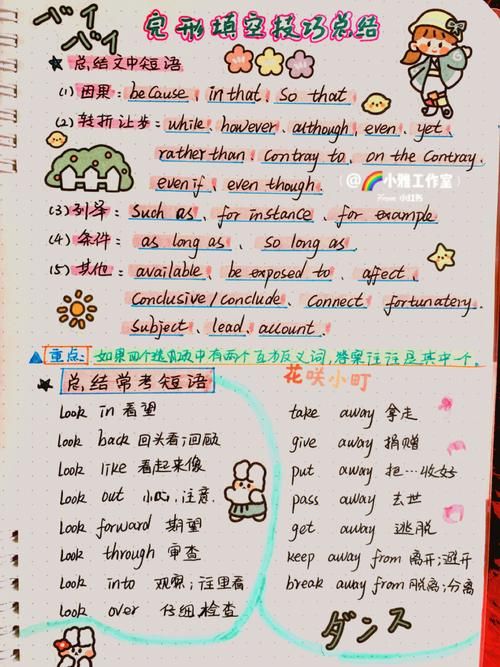 バイ
バイ
完形填空技巧总结
★ 总结文中短语
(1) 因果: because, in that, so that
(2) 转折让步: while, however, although, even, yet,
rather than, contray to, on the contray.
even if, even though.
@🌈小雅工作室
From 小红书
(3) 列举: Such as, for instance, for example
(4) 条件: as long as, so long as
(5) 其他: available, be exposed to, affect,
Conclusive/conclude, connect fortunatery.
subject, lead, account.
重点: 如果四个选项中有两个互为反义词,答案往往是其中一个。
★ 总结常考短语
花咲小町
Look in 看望
Look back 回头看;回顾
Look like 看起来像
Look out 小心,注意.
Look forward 期望
Look through 审查
Look into 观察;往里看
Look over 仔细检查
take away 拿走
give away 捐赠
put away 把…收好
pass away 去世
get away 逃脱
keep away from 离开;避开
break away from 脱离;分离
ダンス